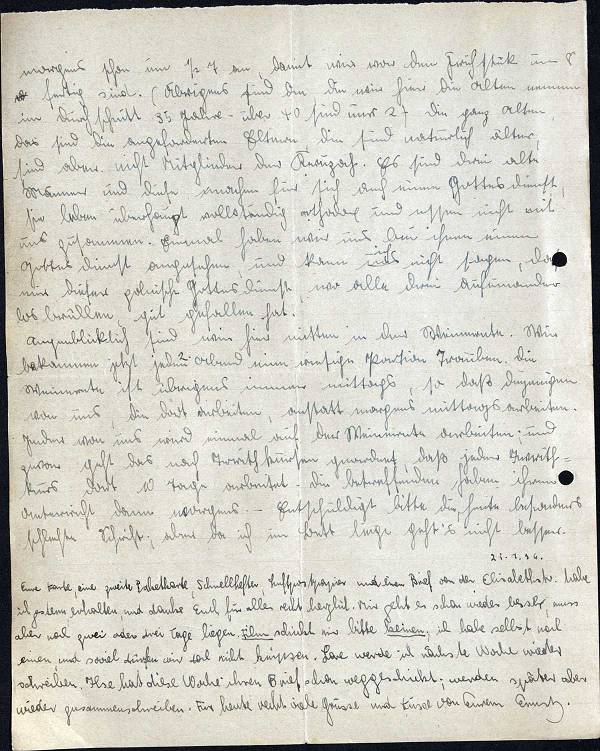 morgens schon um ½ 7 an, damit wir vor dem Frühstük um 8
fertig sind. (Übrigens sind die die wir hier die Alten nennen
im durchschnitt 35 Jahre - über 40 sind nur 2) die ganz Alten,
das sind die angeforderten Eltern, die sind natürlich älter,
sind aber nicht Mitglieder der Kwuzah. Es sind drei alte
Männer und diese machen für sich auch einen Gottesdienst,
sie leben überhaupt vollständig orthodox und essen nicht mit
uns zusammen. Einmal haben wir uns bei ihnen einen
Gottesdienst angesehen, und kann nicht sagen, daß
mir dieser polnische Gottesdienst, wo alle drei aufeinander
losbrüllen, gut gefallen hat.
Augenblicklich sind wir hier mitten in der Weinernte. Wir
bekommen jetzt jeden Abend eine riesige Portion Trauben. die
Weinernte ist übrigens immer mittags, so daß diejenigen
von uns, die dort arbeiten, anstatt morgens mittags arbeiten.
Jeder von uns wird einmal auf der Weinernte arbeiten; und
zwar geht das nach Iwrithkursen geordnet, daß jeder Iwrith=
kurs dort 10 Tage arbeitet. die betreffenden haben ihren
Unterricht dann morgens. – Entschuldigt bitte die heute besonders
schlechte Schrift; aber da ich im Bett liege geht's nicht besser.
Eure Karte eine zweite Paketkarte, Schnellhefter Luftpostpapier und einen Brief von der Elisabethstr. habe
ich gestern erhalten, und danke Euch für alles recht herzlich. Mir geht es schon wieder besser, muss
aber noch zwei oder drei Tage liegen. Film schickt mir bitte keinen, ich habe selbst noch
einen und soviel dürfen wir gar nicht knipsen. Lore werde ich nächste Woche wieder
schreiben. Ilse hat diese Woche ihren Brief schon weggeschickt; werden später aber
wieder zusammenschreiben. Für heute recht viele Grüsse und Küsse von Eurem Ernst.